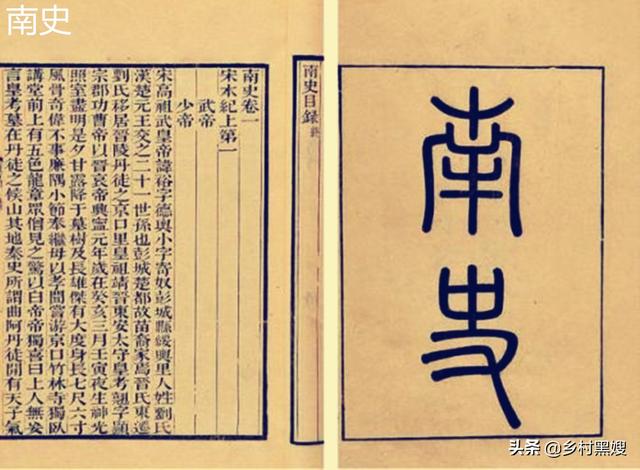 南史
南史卷一
宋本紀上第一
武帝
少帝
宋高祖武皇帝諱裕字德輿小字寄奴彭城縣綏輿里人姓劉氏
漢楚元王交之二十一世孫也彭城楚都故苗裔家焉晉氏東遷
劉氏移居晉陵丹徒之京口里皇祖靖晉東安太守皇考翹字顯
宗郡功曹帝以晉哀帝興寧元年歲在癸亥三月壬寅夜生神光
照室盡明是夕甘露降于墓樹及長雄傑有大度身長七尺六寸
風骨奇偉不事廉隅小節奉繼母以孝聞嘗游京口竹林寺獨臥
講堂前上有五色龍章眾僧見之驚以白帝帝獨喜曰上人無妄
言皇考墓在丹徒之候山其地秦史所謂曲阿丹徒間有天子氣
南史目錄
南史
头条 @乡村黑嫂